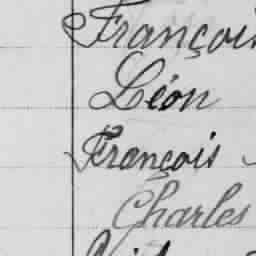 Françoi
Léon
François
Charles